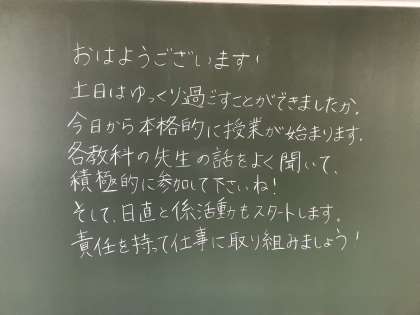 おはようございます!
土日はゆっくり過ごすことができましたか。
今日から本格的に授業が始まります。
各教科の先生の話をよく聞いて、
積極的に参加して下さいね!
そして、日直と係活動もスタートします。
責任を持って仕事に取り組みましょう!